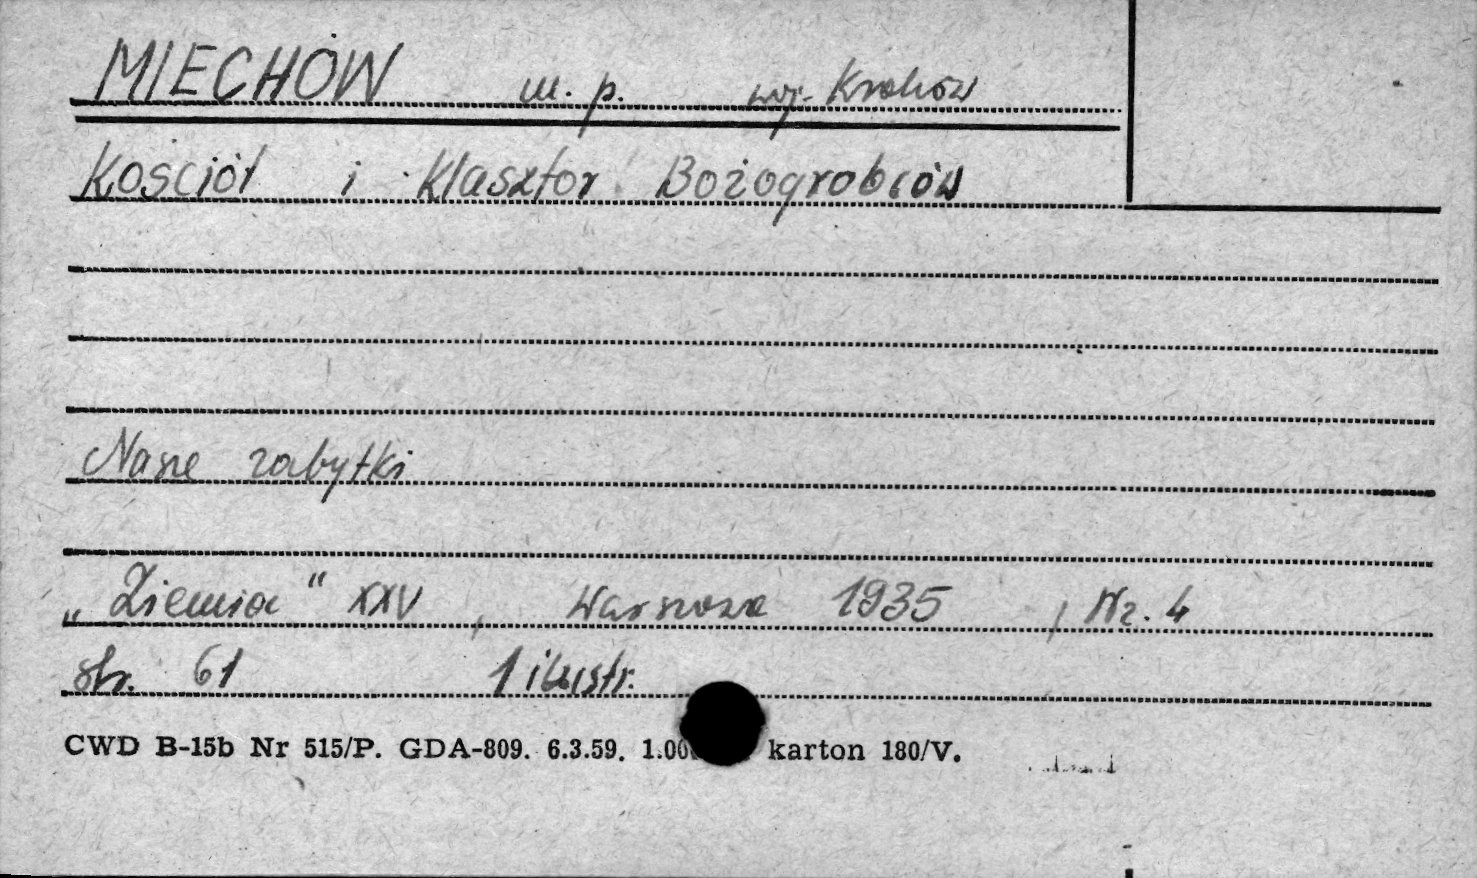 MIECHÓW m. p. woj. Kraków
Kościół i Klasztor Bożogrobców
Nasze zabytki
„Ziemia" XXV, Warszawa 1935, Nr. 4
str. 61 1 ilustr.
CWD B-15b Nr 515/P. GDA-809. 6.3.59. karton 180/V.